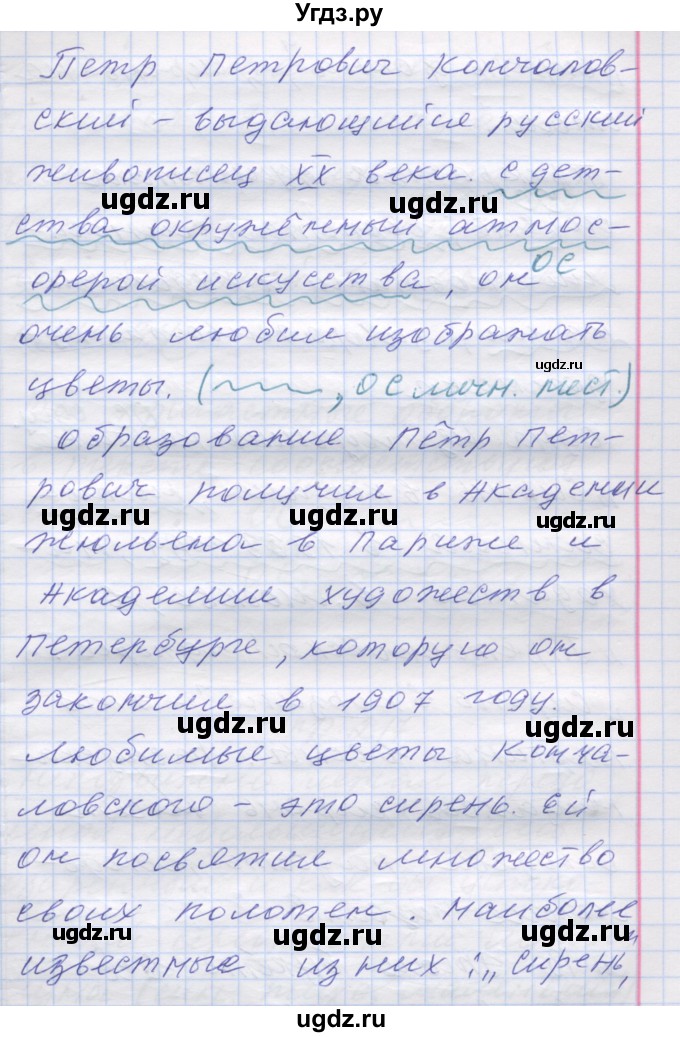 Угдз.ру
Петр Петрович Кончалов-
ский – выдающийся русский
живописец XX века. С дет-
ства окружённый атмос-
ферой искусства, он ОС
очень любил изображать
цветы. ( , ОС личн. мест.)
Образование Пётр Пет-
рович получил в Академии
Жюльена в Париже и
Академии художеств в
Петербурге, которую он
закончил в 1907 году.
Любимые цветы Конча-
ловского – это сирень. Ей
он посвятил множество
своих полотен. Наиболее
известные из них: „Сирень,
ugdz.ru
ugdz.ru
ugdz.ru
ugdz.ru
ugdz.ru
ugdz.ru
ugdz.ru
ugdz.ru
ugdz.ru
ugdz.ru
ugdz.ru
ugdz.ru
ugdz.ru